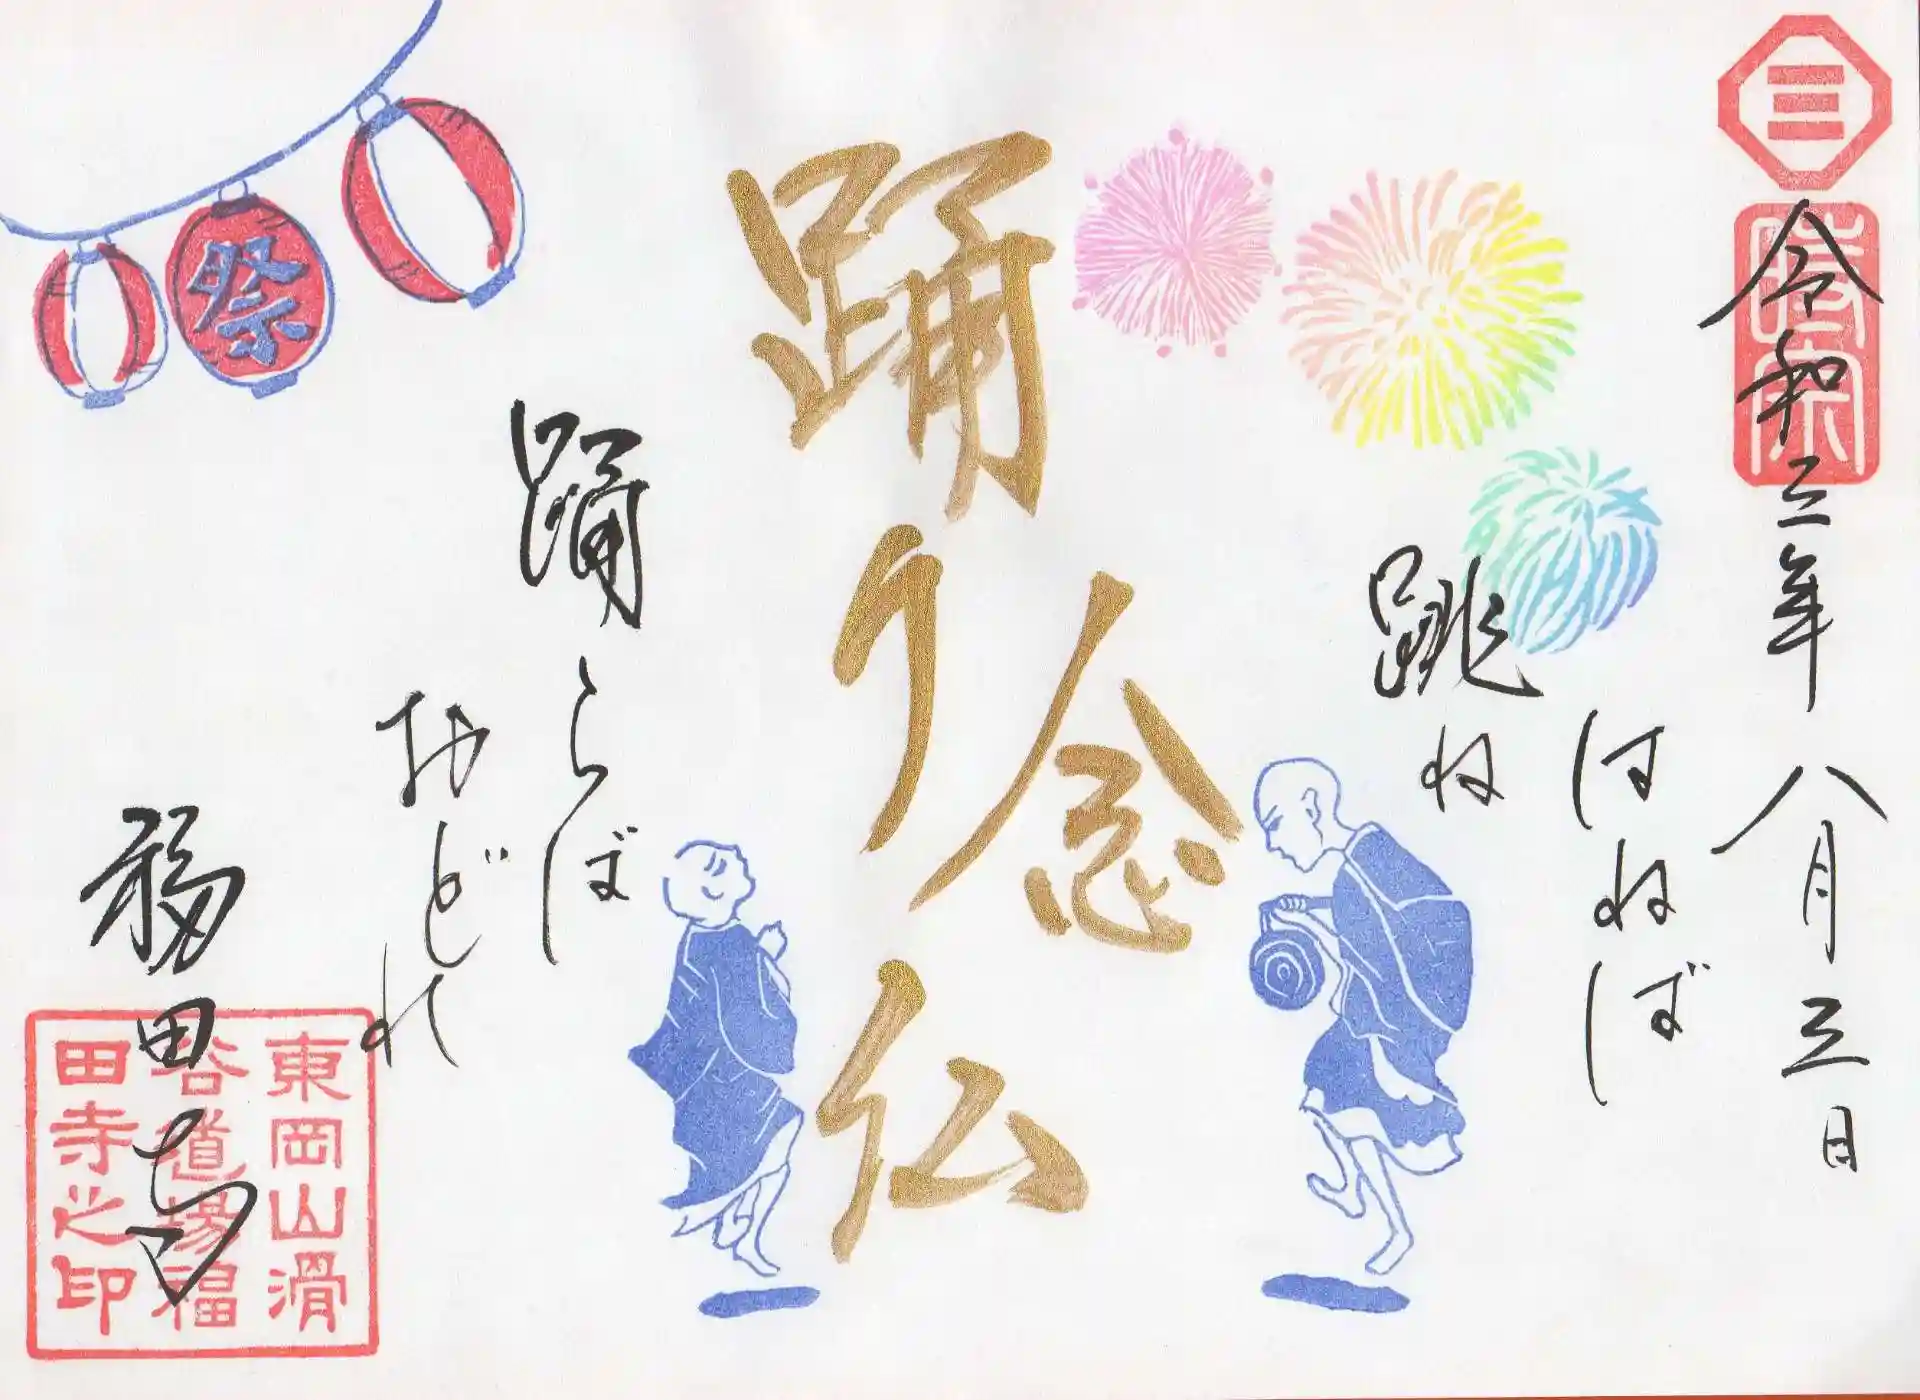 三
時宗
令和三年八月三日
はねば
跳ね
踊り念仏
踊らば
おどれ
祭
福田寺
東岡山滑
谷道場福
田寺之印